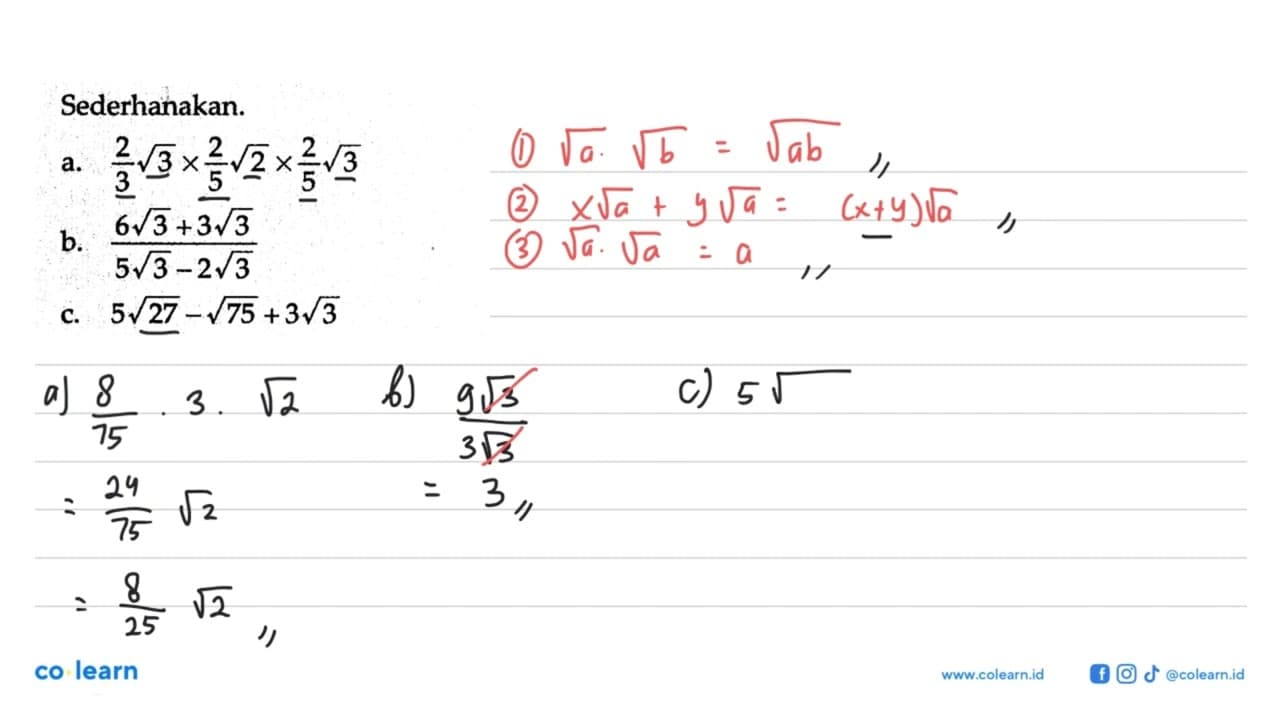 Sederhanakan.
a. 2/3 √3 × 2/5 √2 × 2/5 √3
b. (6√3 + 3√3)/(5√3 – 2√3)
c. 5√27 – √75 + 3√3
① √a . √b = √ab //
② x√a + y√a = (x+y)√a //
③ √a . √a = a //
a) 8/75 . 3 . √2
= 24/75 √2
= 8/25 √2 //
b) 9√3/3√3
= 3 //
c) 5√
co learn
www.colearn.id
@colearn.id